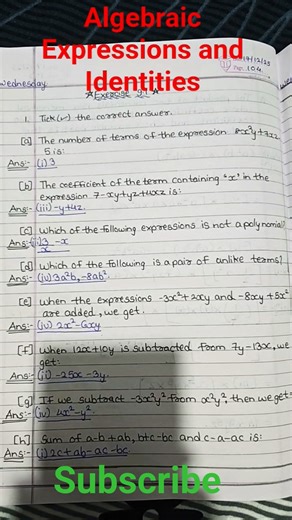 Algebraic
Expressions and
Identities
Wednesday
Exercise
1. Tick (✓) the correct answer.
[a] The number of terms of the expression
5 is:
Ans:- (i) 3
[b] The coefficient of the term containing 'x' in the
expression 7-xy+yz+4xz is:
Ans:- (iii) -y+4z.
[c] Which of the following expressions is not a polynomial?
Ans:- (ii) 3/x - x
[d] Which of the following is a pair of unlike terms?
Ans:- (iv) 3a²b, -8ab².
[e] When the expressions -3x²+2xy and -8xy+5x²
are added, we get.
Ans:- (iv) 2x²-6xy
[f] When 12x+10y is subtracted from 7y-13x, we
get:
Ans:- (i) -25x-3y.
[g] If we subtract -3x²y² from x²y², then we get
Ans:- (iv) 4x²y².
[h] Sum of a-b+ab, b+c-bc and c-a-ac is:
Ans:- (i) 2c+ab-ac-bc
Subscribe